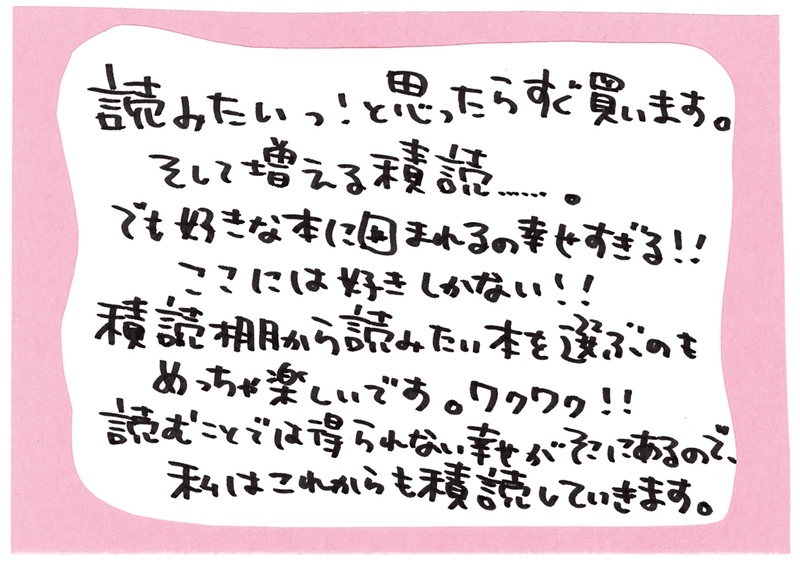 読みたいっ!と思ったらすぐ買います。
そして増える積読……。
でも好きな本に囲まれるの幸せすぎる!!
ここには好きしかない!!
積読棚から読みたい本を選ぶのも
めっちゃ楽しいです。ワクワク!!
読むことでは得られない幸せがそこにあるので、
私はこれからも積読していきます。